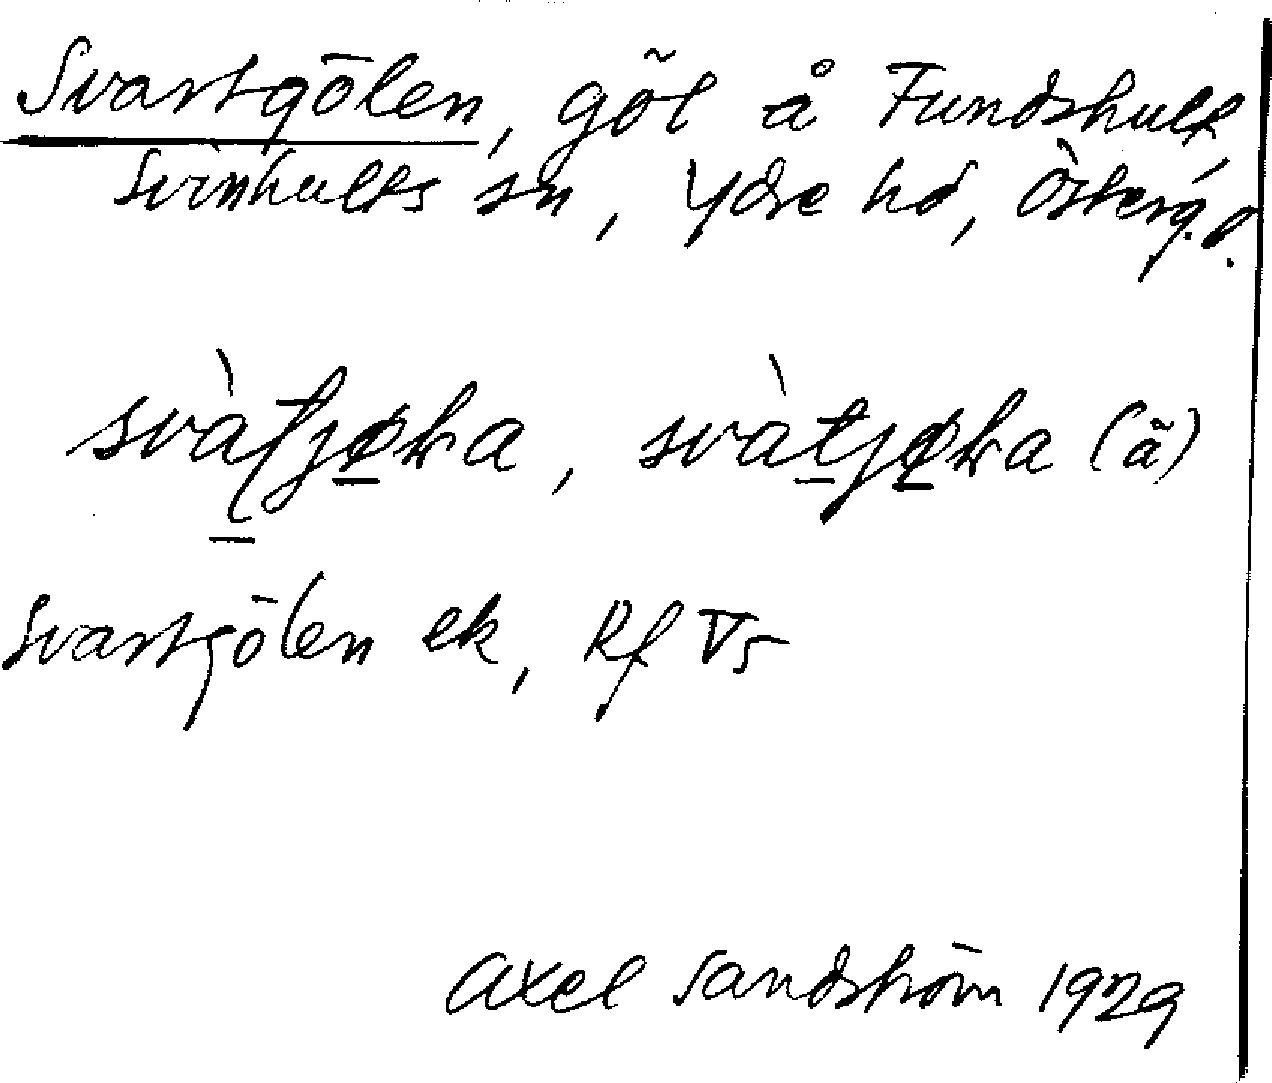 Svartgölen, göl å Fundshult,
Svinhults sn, Ydre hd, Österg. l.
svàtjøka, svàtjøka (ã)
Svartgölen ek, Rf Vs
Axel Sandström 1929